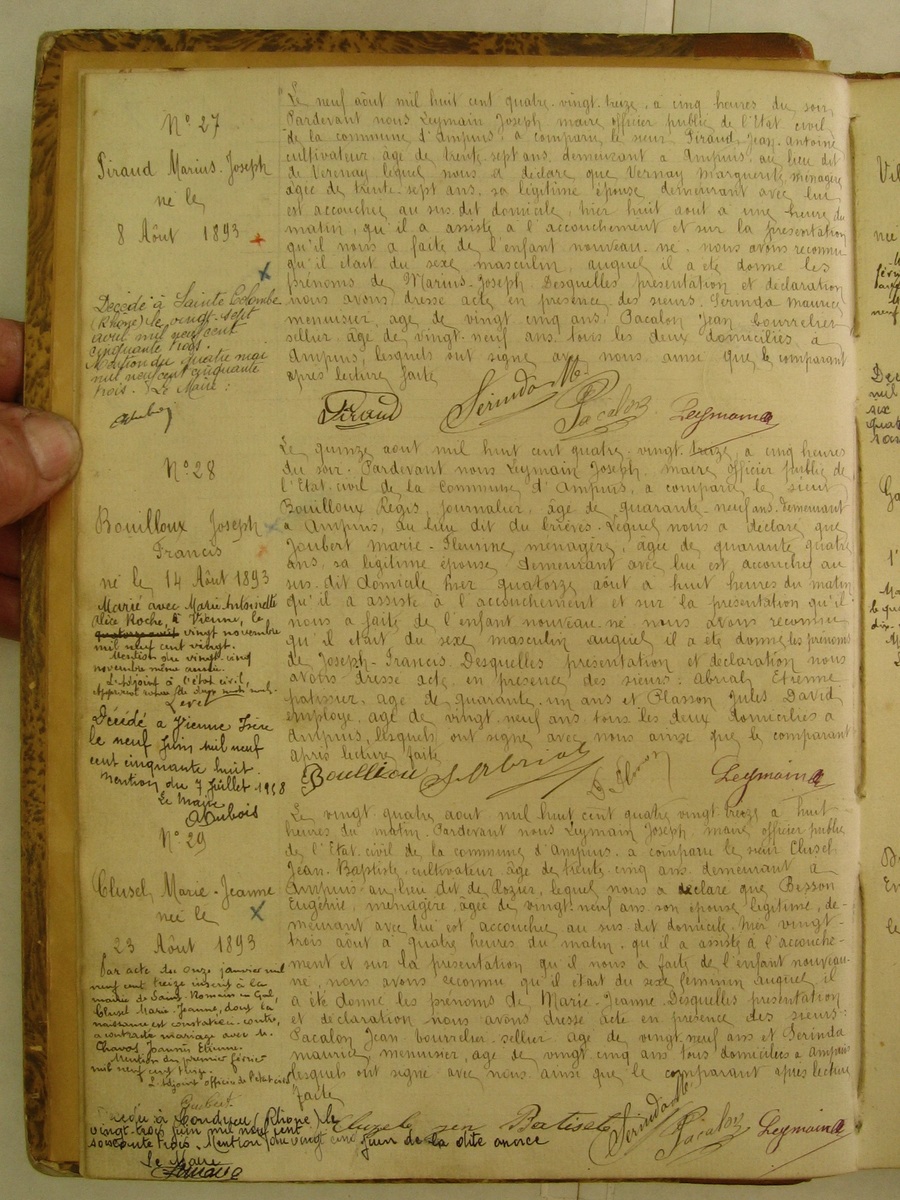 N° 27
Piraud Marius-Joseph
né le
8 Août 1893
Décédé à Sainte Colombe
(Rhône) le vingt-sept
avril mil neuf cent
cinquante trois.
Mention du quatre mai
mil neuf cent cinquante
trois. Le Maire :
Le neuf août mil huit cent quatre-vingt-treize, à cinq heures du soir
Pardevant nous Leymain Joseph maire officier public de l'Etat civil
de la commune d'Ampuis, a comparu le sieur Piraud Jean-Antoine
cultivateur âgé de trente-sept ans, demeurant à Ampuis, au lieu dit
de Verenay lequel nous a déclaré que Vernay Marguerite ménagère
âgée de trente-sept ans, sa légitime épouse demeurant avec lui
est accouchée au sus-dit domicile, hier huit août à une heure du
matin, qu'il a assisté à l'accouchement et sur la présentation
qu'il nous a faite de l'enfant nouveau-né, nous avons reconnu
qu'il était du sexe masculin, auquel il a été donné les
prénoms de Marius-Joseph. Desquelles présentation et déclaration
nous avons dressé acte en présence des sieurs Serinda Maurice
menuisier, âgé de vingt-cinq ans, Pacalon Jean bourrelier
sellier âgé de vingt-neuf ans tous les deux domiciliés à
Ampuis, lesquels ont signé avec nous ainsi que le comparant
après lecture faite
Piraud Serinda M. Pacalon Leymain
N° 28
Bouilloux Joseph
Francis
né le 14 Août 1893
Marié avec Marie-Antoinette
Alice Roche, à Vienne, le
vingt novembre
mil neuf cent vingt.
Mention du vingt cinq
novembre même année.
L'adjoint à l'état civil,
Décédé à Vienne Isère
le neuf Juin mil neuf
cent cinquante huit.
Mention du 7 Juillet 1958
Le Maire
Dubois
Le quinze août mil huit cent quatre-vingt-treize, à cinq heures
du soir. Pardevant nous Leymain Joseph, maire officier public de
l'Etat civil de la Commune d'Ampuis, a comparu le sieur
Bouilloux Régis, journalier, âgé de quarante-neuf ans. Demeurant
à Ampuis, au lieu dit du brières. Lequel nous a déclaré que
Joubert Marie-Fleurine ménagère, âgée de quarante quatre
ans, sa légitime épouse demeurant avec lui est accouchée au
sus-dit domicile hier quatorze août à huit heures du matin
qu'il a assisté à l'accouchement et sur la présentation qu'il
nous a faite de l'enfant nouveau-né nous avons reconnu
qu'il était du sexe masculin auquel il a été donné les prénoms
de Joseph-Francis. Desquelles présentation et déclaration nous
avons dressé acte en présence des sieurs: Abrial Etienne
patissier, âgé de quarante-un ans et Plasson Jules David
employé, âgé de vingt-neuf ans tous les deux domiciliés à
Ampuis, lesquels ont signé avec nous ainsi que le comparant
après lecture faite
Bouilliou Abrial Leymain
N° 29
Clusel Marie-Jeanne
née le
23 Août 1893
Par acte du onze janvier mil
neuf cent treize inscrit à la
mairie de Saint Romain en Gal,
Clusel Marie-Jeanne, dont la
naissance est constatée ci-contre,
a contracté mariage avec M.
Chavas Joannis Etienne.
Mention du premier février
mil neuf cent treize.
L'adjoint officier de l'état civil
Décédée à Condrieu (Rhône) le
vingt-trois juin mil neuf cent
soixante trois. Mention du vingt cinq juin de la dite année
Le Maire
Le vingt quatre août mil huit cent quatre vingt-treize à huit
heures du matin. Pardevant nous Leymain Joseph maire officier public
de l'Etat civil de la commune d'Ampuis a comparu le sieur Clusel
Jean-Baptiste cultivateur âgé de trente-cinq ans demeurant à
Ampuis au lieu dit de Rozier, lequel nous a déclaré que Besson
Eugénie, ménagère âgée de vingt-neuf ans son épouse légitime, de-
meurant avec lui est accouchée au sus-dit domicile hier vingt-
trois août à quatre heures du matin, qu'il a assisté à l'accouche-
ment et sur la présentation qu'il nous a faite de l'enfant nouveau-
né, nous avons reconnu qu'il était du sexe féminin auquel il
a été donné les prénoms de Marie-Jeanne. Desquelles présentation
et déclaration nous avons dressé acte en présence des sieurs:
Pacalon Jean bourrelier-sellier âgé de vingt-neuf ans et Serinda
Maurice menuisier, âgé de vingt-cinq ans tous domiciliés à Ampuis
lesquels ont signé avec nous ainsi que le comparant après lecture
faite
Cluzel Batiste Serinda M. Pacalon Leymain